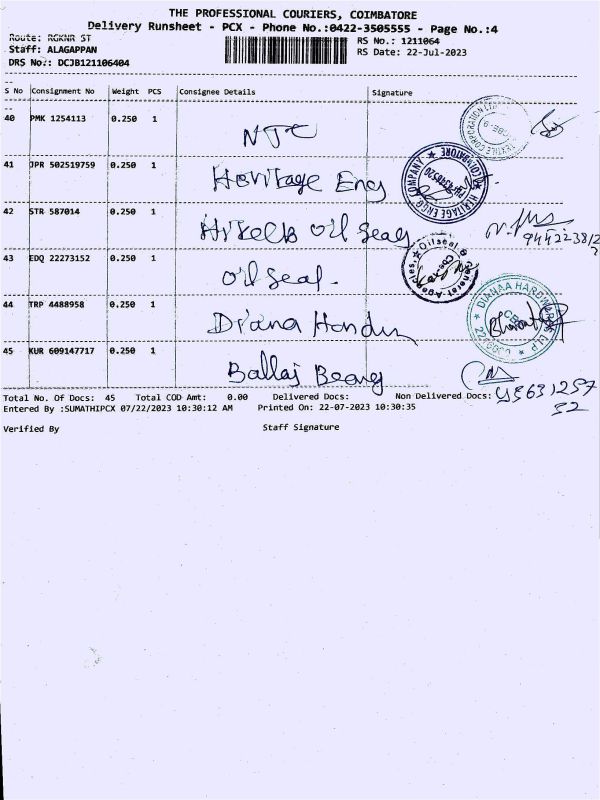 THE PROFESSIONAL COURIERS, COIMBATORE
Delivery Runsheet - PCX - Phone No.:0422-3505555 - Page No.:4
Route: RGKNR ST
RS No.: 1211064
Staff: ALAGAPPAN
RS Date: 22-Jul-2023
DRS No.: DCJB121106404
S No Consignment No Weight PCS Consignee Details Signature
40 PMK 1254113 0.250 1 NTC
41 JPR 502519759 0.250 1 Heritage Eng
HERITAGE ENGG COMPANY ★ COIMBATORE ★
42 STR 587014 0.250 1 oil Seag
43 EDQ 22273152 0.250 1 oil Seal.
Oilseal & General Agencies.
44 TRP 4488958 0.250 1 Diana
★ DIANAA HARDWARE LLP ★
45 KUR 609147717 0.250 1 Ballaj Beang
Total No. Of Docs: 45 Total COD Amt: 0.00 Delivered Docs: Non Delivered Docs:
Entered By :SUMATHIPCX 07/22/2023 10:30:12 AM Printed On: 22-07-2023 10:30:35
Verified By Staff Signature